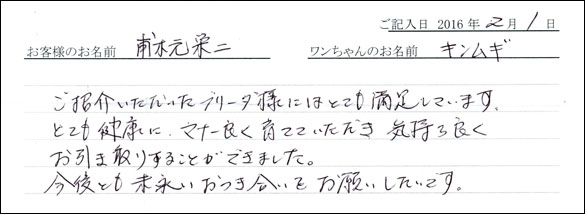 ご記入日 2016年 2月 1日
お客様のお名前 甫木元栄二 ワンちゃんのお名前 キンムギ
ご紹介いただいたブリーダ様にはとても満足しています。
とても健康に、マナー良く育てていただき 気持ち良く
お引き取りすることができました。
今後とも末永いおつき合いを お願いしたいです。